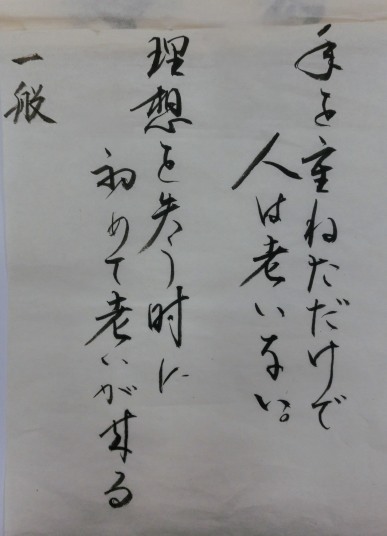 年を重ねただけで
人は老いない。
理想を失う時に
初めて老いが来る
一般